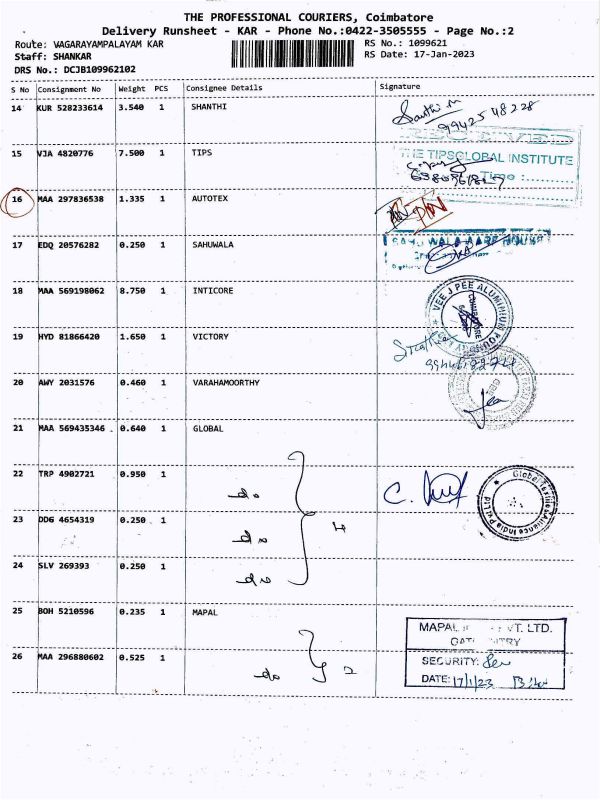 THE PROFESSIONAL COURIERS, Coimbatore
Delivery Runsheet - KAR - Phone No.:0422-3505555 - Page No.:2
Route: VAGARAYAMPALAYAM KAR
RS No.: 1099621
Staff: SHANKAR
RS Date: 17-Jan-2023
DRS No.: DCJB109962102
S No Consignment No Weight PCS Consignee Details Signature
14 KUR 528233614 3.540 1 SHANTHI
99425 48228
RECEIVED
15 VJA 4820776 7.500 1 TIPS
THE TIPSGLOBAL INSTITUTE
Time :
16 MAA 297836538 1.335 1 AUTOTEX
17 EDQ 20576282 0.250 1 SAHUWALA
18 MAA 569198062 8.750 1 INTICORE
VEE J PEE ALUMINIUM FOUNDRY
COIMBATORE
19 HYD 81866420 1.650 1 VICTORY
20 AWY 2031576 0.460 1 VARAHAMOORTHY
21 MAA 569435346 0.640 1 GLOBAL
22 TRP 4902721 0.950 1 do
Global Textile Alliance India Pvt Ltd
23 DDG 4654319 0.250 1 do 4
24 SLV 269393 0.250 1 do
25 BOH 5210596 0.235 1 MAPAL
MAPAL VT. LTD.
26 MAA 296880602 0.525 1 do 2
SECURITY:
DATE: 17/1/23